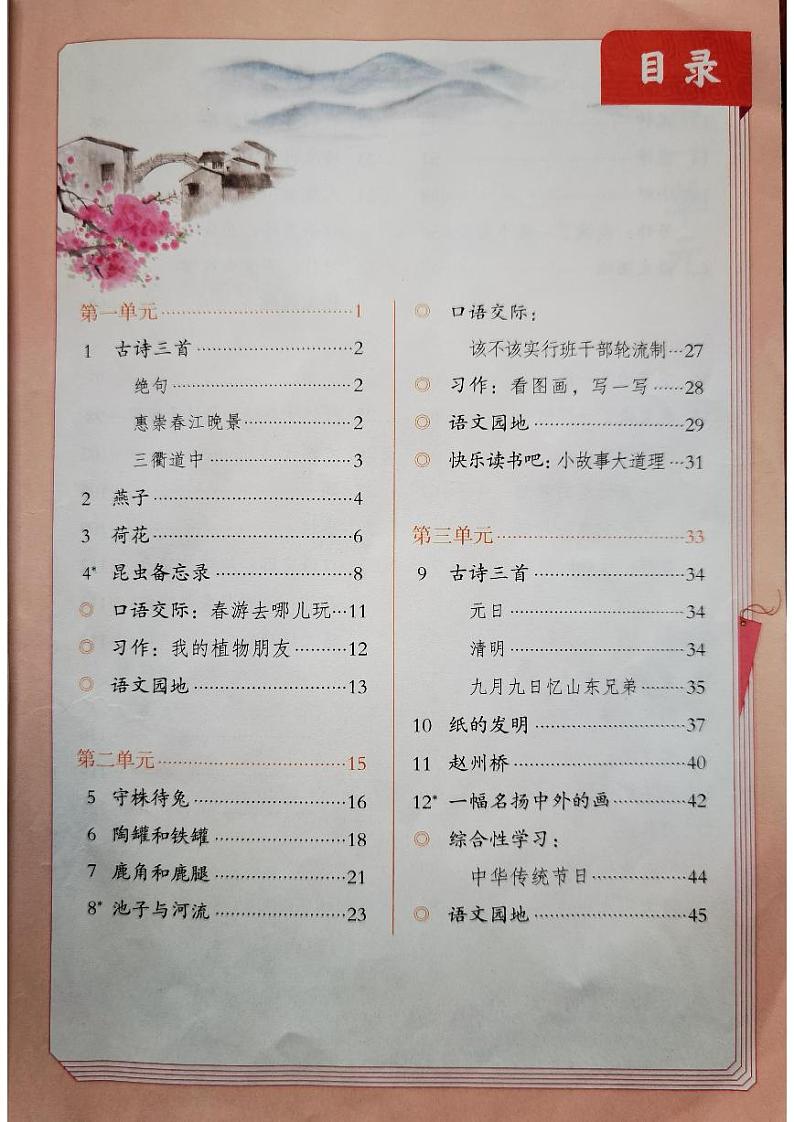 目录
第一单元 1
1 古诗三首 2
绝句 2
惠崇春江晚景 2
三衢道中 3
2 燕子 4
3 荷花 6
4* 昆虫备忘录 8
◎ 口语交际：春游去哪儿玩 11
◎ 习作：我的植物朋友 12
◎ 语文园地 13
第二单元 15
5 守株待兔 16
6 陶罐和铁罐 18
7 鹿角和鹿腿 21
8* 池子与河流 23
◎ 口语交际：
该不该实行班干部轮流制 27
◎ 习作：看图画，写一写 28
◎ 语文园地 29
◎ 快乐读书吧：小故事大道理 31
第三单元 33
9 古诗三首 34
元日 34
清明 34
九月九日忆山东兄弟 35
10 纸的发明 37
11 赵州桥 40
12* 一幅名扬中外的画 42
◎ 综合性学习：
中华传统节日 44
◎ 语文园地 45